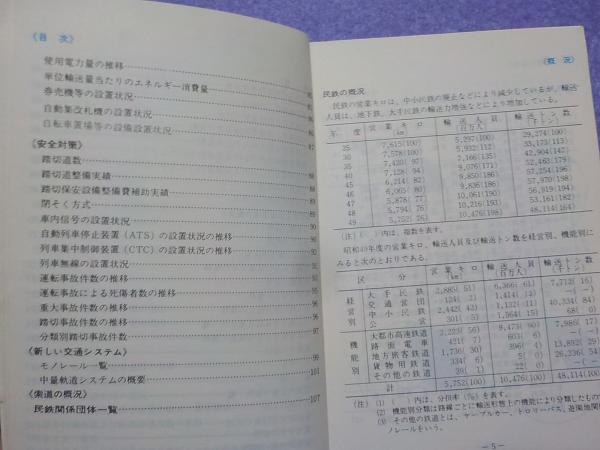 《目 次》
使用電力量の推移
単位輸送量当たりのエネルギー消費量
券売機等の設置状況
自動集改札機の設置状況
自転車置場等の設備設置状況 87
《安全対策》
踏切道数 88
踏切道整備実績 88
踏切保安設備整備費補助実績
閉そく方式
車内信号の設置状況 90
自動列車停止装置(ATS)の設置状況の推移
列車集中制御装置(CTC)の設置状況の推移
列車無線の設置状況
運転事故件数の推移
運転事故による死傷者数の推移 95
重大事故件数の推移 96
踏切事故件数の推移 96
分類別踏切事故件数 97
《新しい交通システム》
モノレール一覧 99
中量軌道システムの概要 101
《索道の概況》
民鉄関係団体一覧 107
《概 況》
民鉄の概況
民鉄の営業キロは、中小民鉄の廃止などにより減少しているが、輸送
人員は、地下鉄、大手民鉄の輸送力増強などにより増加している。
年 度 営業キロ(km) 輸送人員(百万人) 輸送トン数(千トン)
25 7,615(100) 5,297(100) 29,274(100)
30 7,578(100) 5,932(112) 33,173(113)
35 7,420(97) 7,166(135) 42,904(147)
40 7,128(94) 9,076(171) 52,463(179)
45 6,214(82) 9,850(186) 57,254(196)
46 6,065(80) 9,836(186) 57,970(198)
47 5,876(77) 10,061(190) 56,919(194)
48 5,794(76) 10,216(193) 53,161(182)
49 5,752(76) 10,476(198) 48,114(164)
(注) ( )内は、指数を表す。
昭和49年度の営業キロ、輸送人員及び輸送トン数を経営別、機能別に
みると次のとおりである。
区 分 営業キロ(km) 輸送人員(百万人) 輸送トン数(千トン)
経営別 大手民鉄 2,885(51) 6,366(61) 7,712(16)
交通営団 124(2) 1,414(13) −(−)
中小民鉄 2,442(42) 1,132(11) 40,334(84)
公営 301(5) 1,564(15) 68(0)
機能別 大都市高速鉄道 2,223(56) 9,473(90) 7,986(17)
路面電車 421(7) 603(6) −(−)
地方旅客鉄道 1,736(30) 396(4) 13,892(29)
貨物用鉄道 334(6) 5(0) 26,236(54)
その他の鉄道 39(1) 22(0) −(−)
計 5,752(100) 10,476(100) 48,114(100)
(注) (1) ( )内は、分担率(%)を表す。
(2) 機能別分類は路線ごとに輸送形態上の機能により分類したもの
(3) その他の鉄道とは、ケーブルカー、トロリーバス、遊園地関
ノレールをいう。
−5−